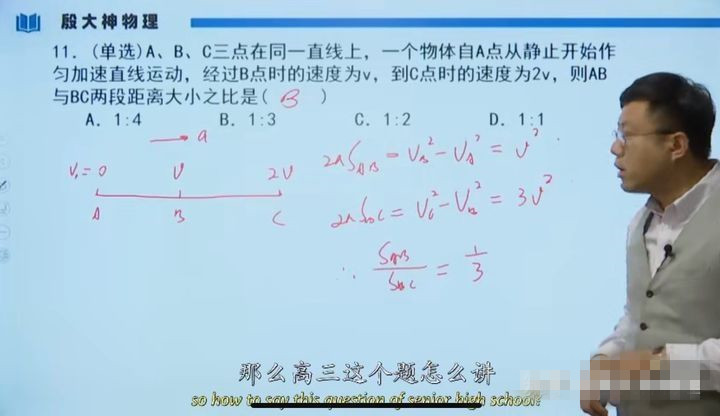 殷大神物理
11.(单选)A、B、C三点在同一直线上，一个物体自A点从静止开始作
匀加速直线运动，经过B点时的速度为v，到C点时的速度为2v，则AB
与BC两段距离大小之比是( B )
A. 1:4 B. 1:3 C. 1:2 D. 1:1
a
V₁=0 V 2V
A B C
2aS_AB = V_B² - V_A² = V²
2aS_BC = V_C² - V_B² = 3V²
∴ S_AB/S_BC = 1/3
那么高三这个题怎么讲
so how to say this question of senior high school?